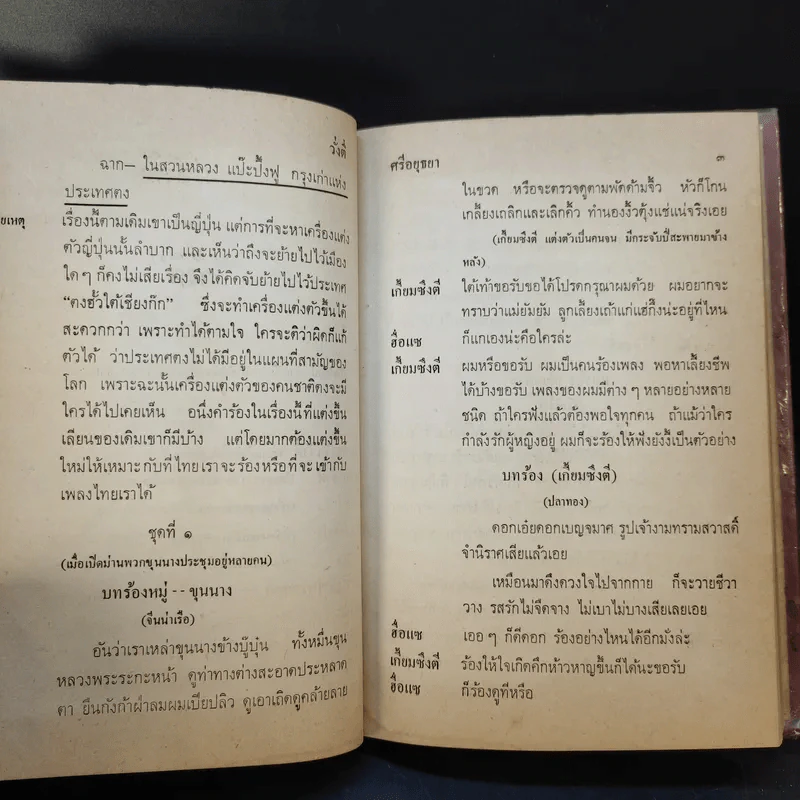 วั่งตี่
ฉาก— ในสวนหลวง แป๊ะปั๊งฟู กรุงเก่าแห่ง
ประเทศตง
ยเหตุ เรื่องนี้ตามเดิมเขาเป็นญี่ปุ่น แต่การที่จะหาเครื่องแต่ง
ตัวญี่ปุ่นนั้นลำบาก และเห็นว่าถึงจะย้ายไปไว้เมือง
ใด ๆ ก็คงไม่เสียเรื่อง จึงได้คิดจับย้ายไปไว้ประเทศ
“ตงฮั้วใต้เชียงก๊ก” ซึ่งจะทำเครื่องแต่งตัวขึ้นได้
สะดวกกว่า เพราะทำได้ตามใจ ใครจะติว่าผิดก็แก้
ตัวได้ ว่าประเทศตงไม่ได้มีอยู่ในแผนที่สามัญของ
โลก เพราะฉะนั้นเครื่องแต่งตัวของคนชาติตงจะมี
ใครได้ไปเคยเห็น อนึ่งคำร้องในเรื่องนี้ที่แต่งขึ้น
เลียนของเดิมเขาก็มีบ้าง แต่โดยมากต้องแต่งขึ้น
ใหม่ให้เหมาะกับที่ไทยเราจะร้องหรือที่จะเข้ากับ
เพลงไทยเราได้
ชุดที่ ๑
(เมื่อเปิดม่านพวกขุนนางประชุมอยู่หลายคน)
บทร้องหมู่ -- ขุนนาง
(จีนนำเรือ)
อันว่าเราเหล่าขุนนางข้างบู๊บุ๋น ทั้งหมื่นขุน
หลวงพระระกะหน้า ดูท่าทางต่างสะอาดประหลาด
ตา ยืนกังก้าผ่าลมผมเปียปลิว ดูเอาเถิดดูคล้ายลาย
ศรีอยุธยา ๓
ในขวด หรือจะตรวจดูตามพัดด้ามจิ้ว หัวก็โกน
เกลี้ยงเถลิกและเลิกคิ้ว ทำนองงิ้วตุ้งแช่แน่จริงเอย
(เกี้ยมซึงตี่ แต่งตัวเป็นคนจน มีกระจับปี่สะพายมาข้าง
หลัง)
เกี้ยมซึงตี่ ใต้เท้าขอรับขอได้โปรดกรุณาผมด้วย ผมอยากจะ
ทราบว่าแม่ยัมยัม ลูกเลี้ยงเถ้าแก่แฮ่กึ๊งน่ะอยู่ที่ไหน
ฮื่อแซ ก็แกเองน่ะคือใครล่ะ
เกี้ยมซึงตี่ ผมหรือขอรับ ผมเป็นคนร้องเพลง พอหาเลี้ยงชีพ
ได้บ้างขอรับ เพลงของผมมีต่าง ๆ หลายอย่างหลาย
ชนิด ถ้าใครฟังแล้วต้องพอใจทุกคน ถ้าแม้ว่าใคร
กำลังรักผู้หญิงอยู่ ผมก็จะร้องให้ฟังยังงี้เป็นตัวอย่าง
บทร้อง (เกี้ยมซึงตี่)
(ปลาทอง)
ดอกเอ๋ยดอกเบญจมาศ รูปเจ้างามทรามสวาสดิ์
จำนิราศเสียแล้วเอย
เหมือนมาดึงดวงใจไปจากกาย ก็จะวายชีวา
วาง รสรักไม่จืดจาง ไม่เบาไม่บางเสียเลยเอย
ฮื่อแซ เออ ๆ ก็ดีดอก ร้องอย่างไหนได้อีกมั่งล่ะ
เกี้ยมซึงตี่ ร้องให้ใจเกิดคึกห้าวหาญขึ้นก็ได้นะขอรับ
ฮื่อแซ ก็ร้องดูทีหรือ